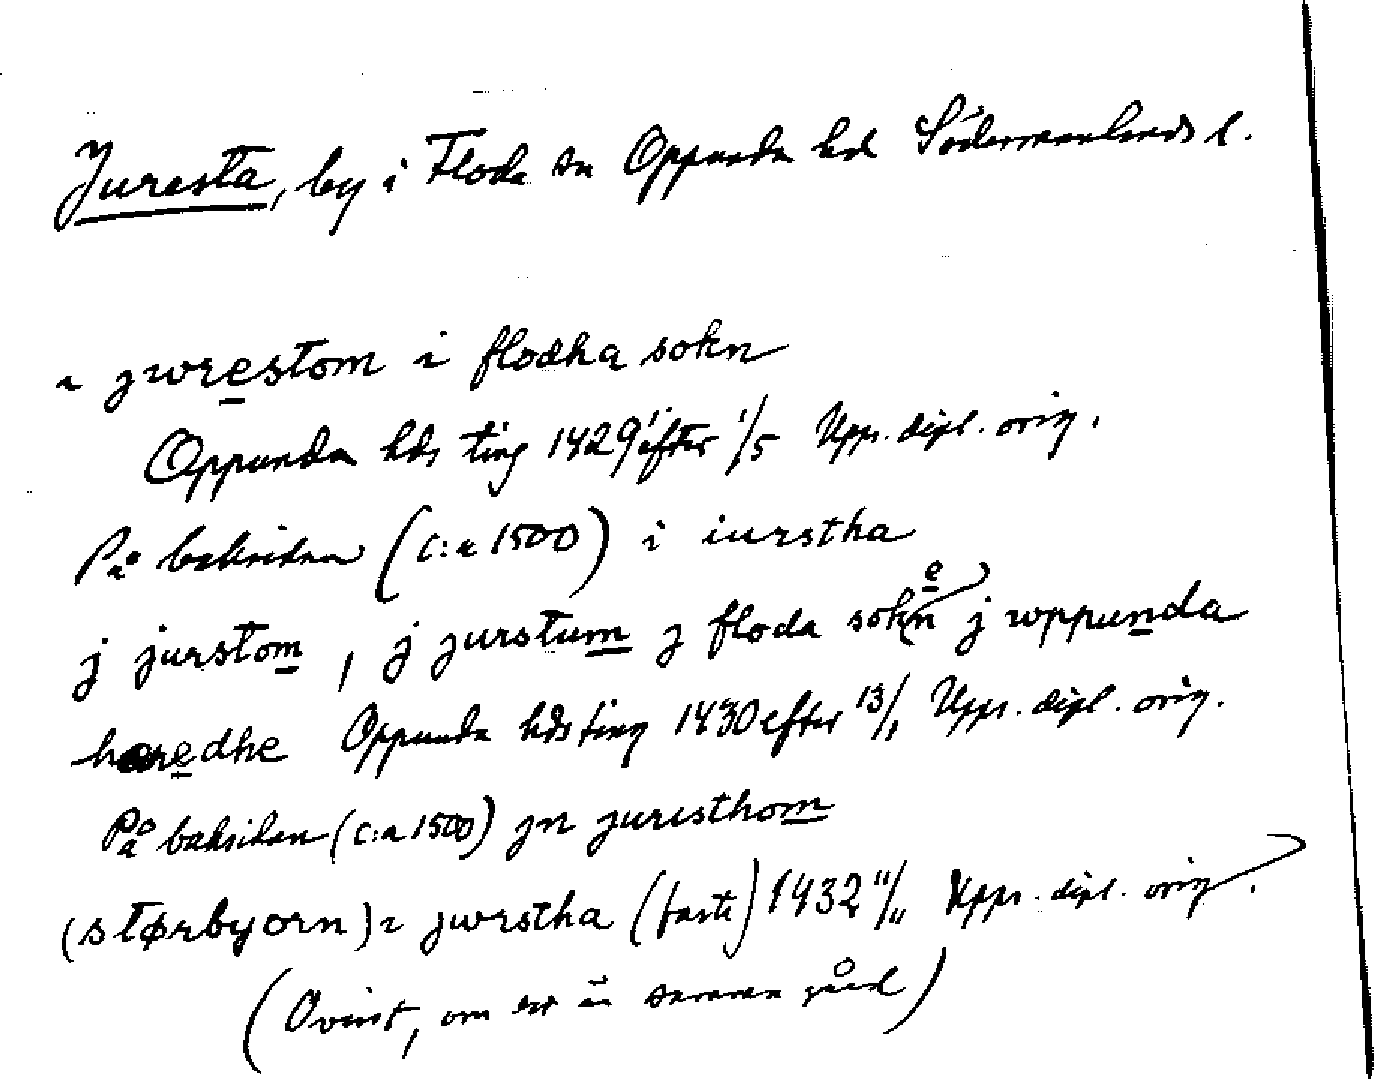 Juresta, by i Floda sn Oppunda hd Södermanlands l.
i jwrestom i flodha sokn
Oppunda hds ting 1429 efter 1/5 Upps. dipl. orig.
På baksidan (c:a 1500) i iurstha
j jurstom, j jurstum j floda sokn e j wppunda
haredhe Oppunda hds ting 1430 efter 13/1 Upps. dipl. orig.
På baksidan (c:a 1500) jn juristhom
(størbyorn) i jwrstha (faste) 1432 11/11 Upps. dipl. orig.
(Ovisst, om det är samma gård)